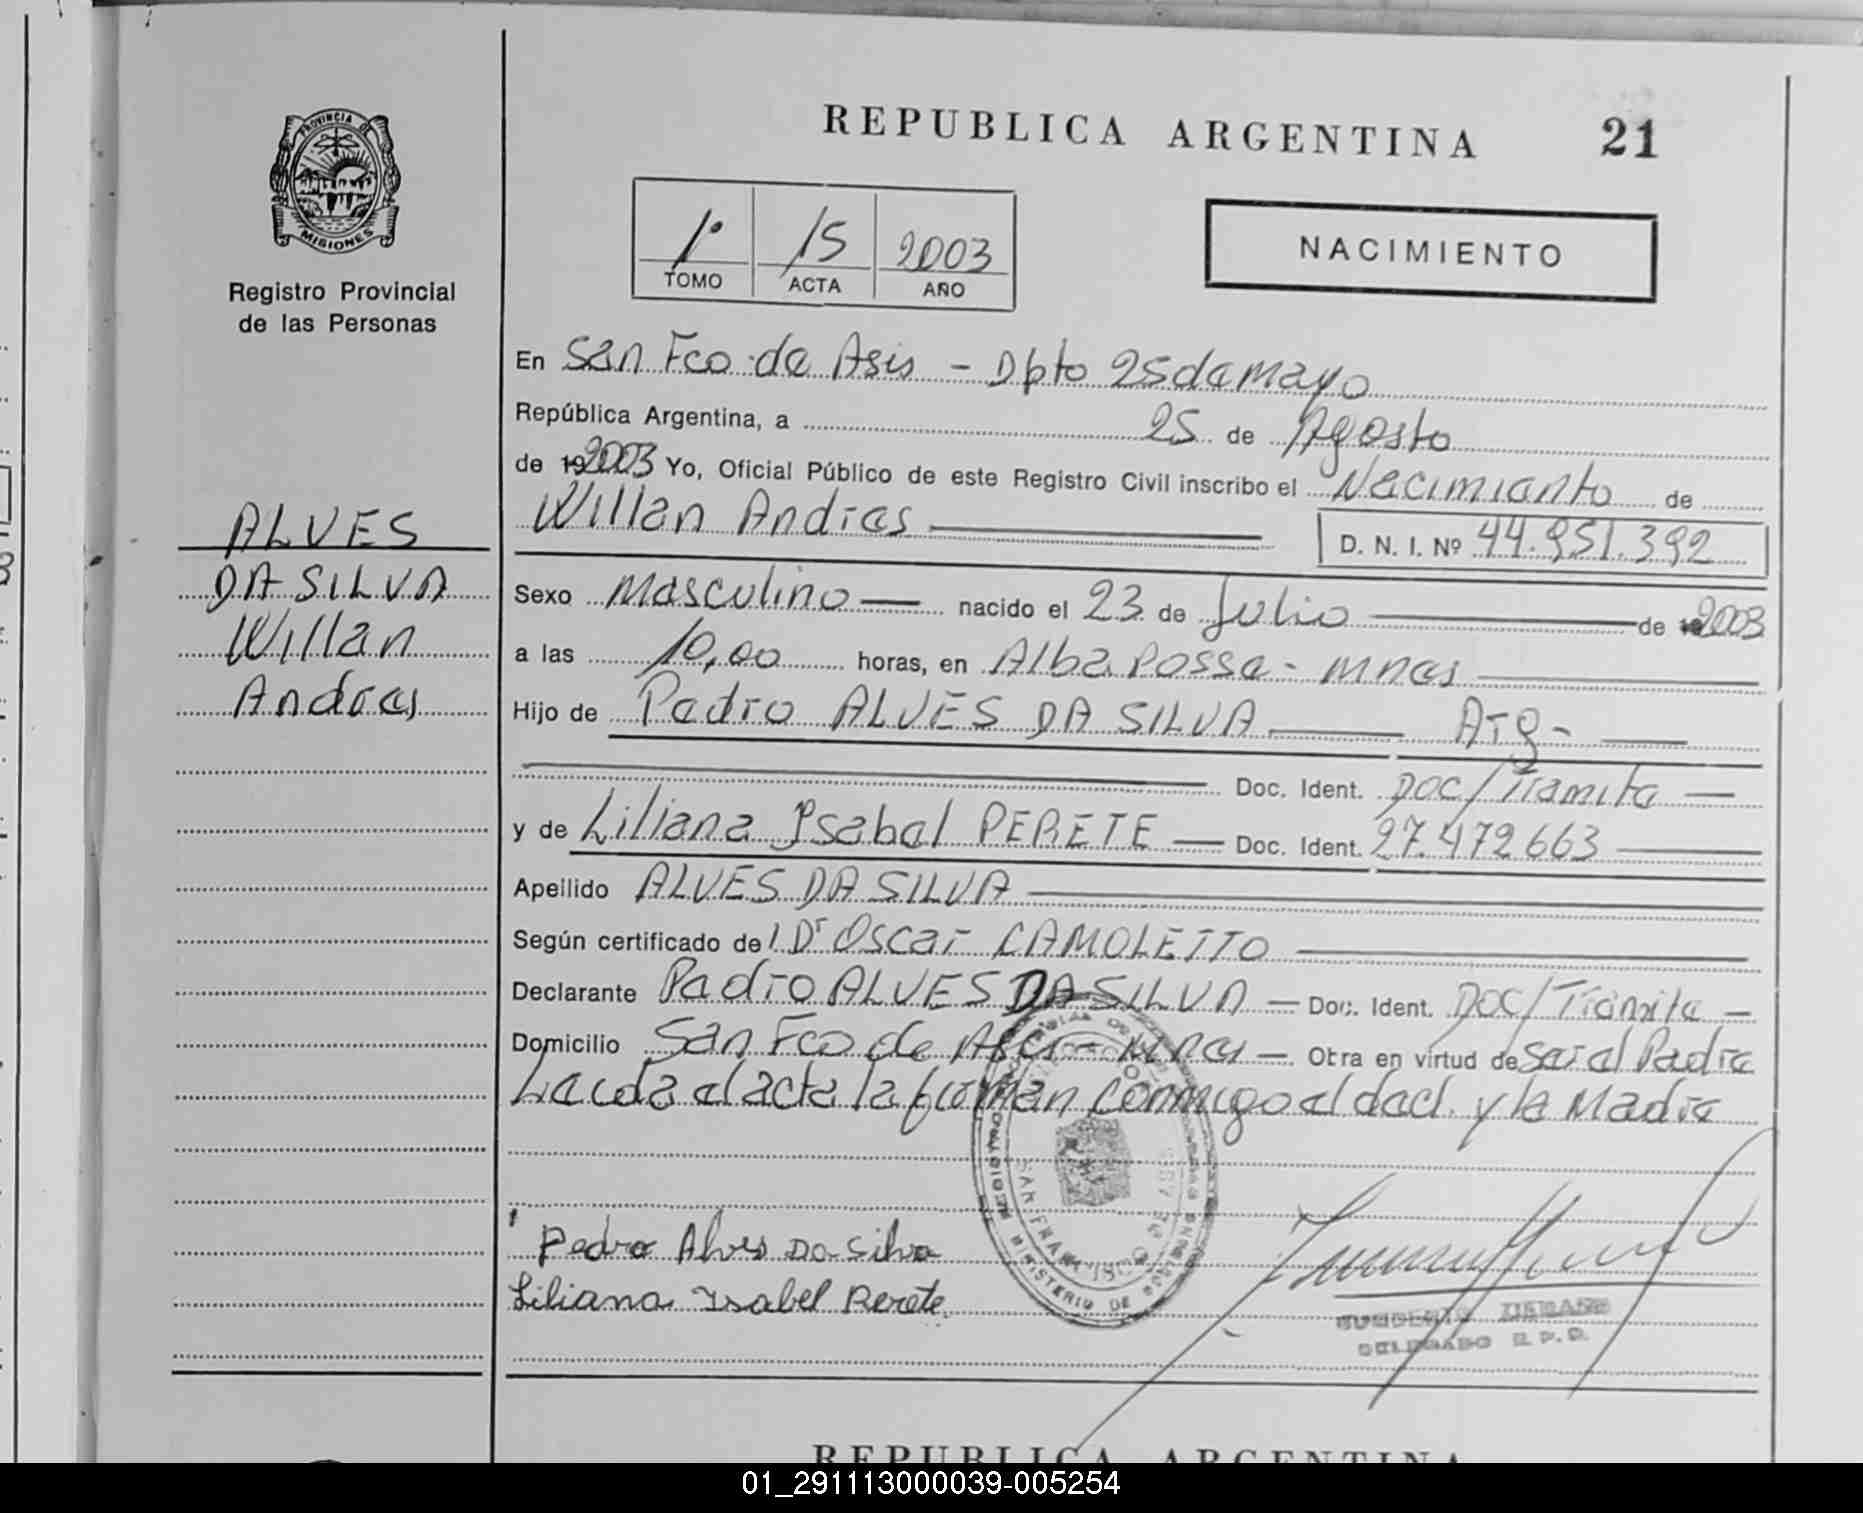 REPUBLICA ARGENTINA 21
PROVINCIA DE
MISIONES
Registro Provincial
de las Personas
1º 15 2003
TOMO ACTA AÑO
NACIMIENTO
En San Fco. de Asis - Dpto 25 de Mayo
República Argentina, a 25 de Agosto
de 192003 Yo, Oficial Público de este Registro Civil inscribo el Nacimiento de
Willan Andres
D. N. I. Nº 44.951.392
ALVES
DA SILVA
Willan
Andres
Sexo Masculino nacido el 23 de Julio de 2003
a las 10,00 horas, en Alba Posse - Mnes
Hijo de Pedro ALVES DA SILVA Arg-
Doc. Ident. Doc/Tramite
y de Liliana Ysabel PERETE Doc. Ident. 27.472663
Apellido ALVES DA SILVA
Según certificado del Dr Oscar CAMOLETTO
Declarante Pedro ALVES DA SILVA Doc. Ident. Doc/Tramite
Domicilio San Fco de Asis - Mnes Obra en virtud de ser el Padre
Leida el acta la firman conmigo el decl. y la Madre
Pedro Alves Da Silva
Liliana Isabel Perete
MINISTERIO DE
SAN FRANCISCO DE ASIS
DELEGADO R.P.P.
REPUBLICA ARGENTINA
01_291113000039-005254